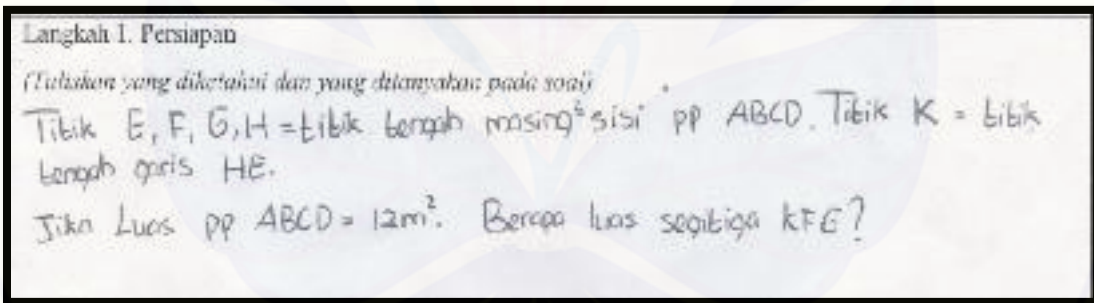 Langkah 1. Persiapan
(Tuliskan yang diketahui dan yang ditanyakan pada soal)
Titik E, F, G, H = titik tengah masing² sisi pp ABCD. Titik K = titik
tengah garis HE.
Jika Luas pp ABCD = 12m². Berapa luas segitiga KFG?